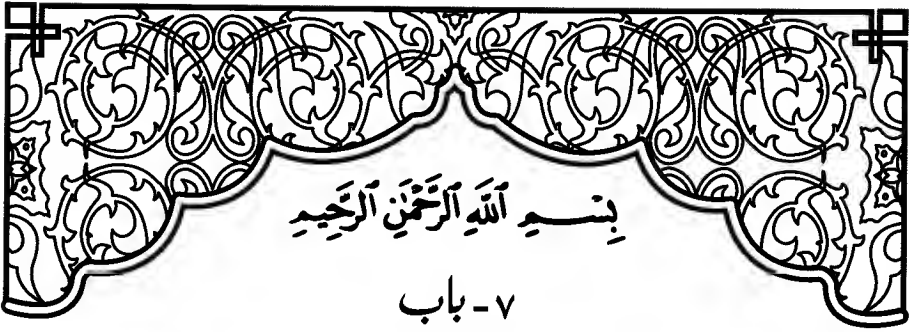 بِسْمِ ٱللَّهِ ٱلرَّحْمَٰنِ ٱلرَّحِيمِ
٧ - باب